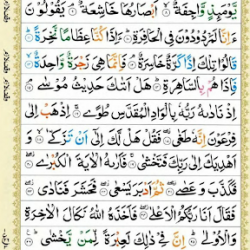 يَوْمَئِذٍ وَّاجِفَةٌ ۙ اَبْصَارُهَا خَاشِعَةٌ ۘ يَقُوْلُوْنَ
ءَاِنَّا لَمَرْدُوْدُوْنَ فِى الْحَافِرَةِ ؕ ءَاِذَا كُنَّا عِظَامًا نَّخِرَةً ؕ
قَالُوْا تِلْكَ اِذًا كَرَّةٌ خَاسِرَةٌ ۘ فَاِنَّمَا هِىَ زَجْرَةٌ وَّاحِدَةٌ ۙ
فَاِذَا هُمْ بِالسَّاهِرَةِ ؕ هَلْ اَتٰىكَ حَدِيْثُ مُوْسٰى ۘ
اِذْ نَادٰىهُ رَبُّهٗ بِالْوَادِ الْمُقَدَّسِ طُوًى ۚ اِذْهَبْ اِلٰى
فِرْعَوْنَ اِنَّهٗ طَغٰى ۖ فَقُلْ هَلْ لَّكَ اِلٰٓى اَنْ تَزَكّٰى ۙ وَ
اَهْدِيَكَ اِلٰى رَبِّكَ فَتَخْشٰى ۚ فَاَرٰىهُ الْاٰيَةَ الْكُبْرٰى ۖ
فَكَذَّبَ وَعَصٰى ۖ ثُمَّ اَدْبَرَ يَسْعٰى ۖ فَحَشَرَ فَنَادٰى ۖ
فَقَالَ اَنَا رَبُّكُمُ الْاَعْلٰى ۖ فَاَخَذَهُ اللّٰهُ نَكَالَ الْاٰخِرَةِ
وَالْاُوْلٰى ؕ اِنَّ فِىْ ذٰلِكَ لَعِبْرَةً لِّمَنْ يَّخْشٰى ؕ